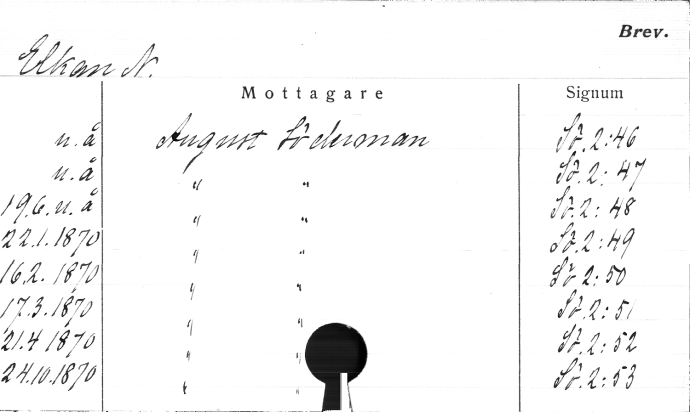 Brev.
Elkan N.
Mottagare Signum
u.å August Söderman Sö. 2:46
u.å " " Sö. 2:47
19.6. u.å " " Sö. 2:48
22.1.1870 " " Sö. 2:49
16.2.1870 " " Sö 2:50
17.3.1870 " " Sö. 2:51
21.4 1870 " " Sö. 2:52
24.10.1870 " " Sö. 2:53